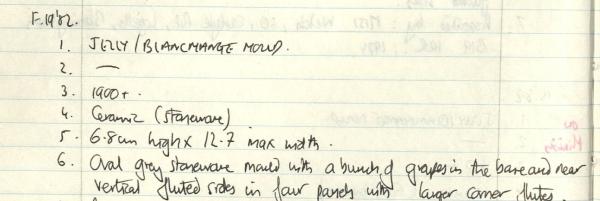 F.19'82.
1. JELLY/BLANCMANGE MOULD.
2. —
3. 1900+.
4. Ceramic (stoneware)
5. 6.8cm high x 12.7 max width.
6. Oval grey stoneware mould with a bunch of grapes in the base and near
vertical fluted sides in four panels with larger corner flutes.